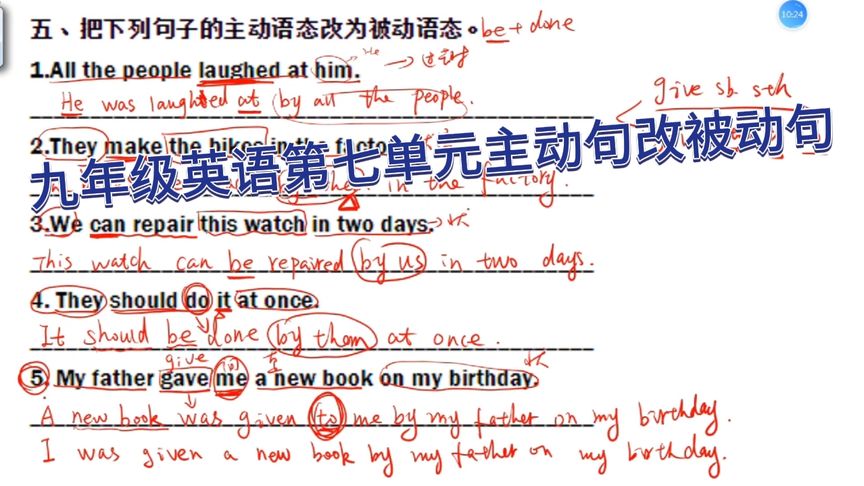 10:24
五、把下列句子的主动语态改为被动语态。be + done
1.All the people laughed at him. He → 过去时
give sb. sth
He was laughted at by all the people.
2.They make the bikes in the factory
九年级英语第七单元主动句改被动句
in the factory.
3.We can repair this watch in two days. → 状
This watch can be repaired by us in two days.
4. They should do it at once.
It should be done by them at once.
give 间 直 状
5. My father gave me a new book on my birthday.
A new book was given to me by my father on my birthday.
I was given a new book by my father on my birthday.